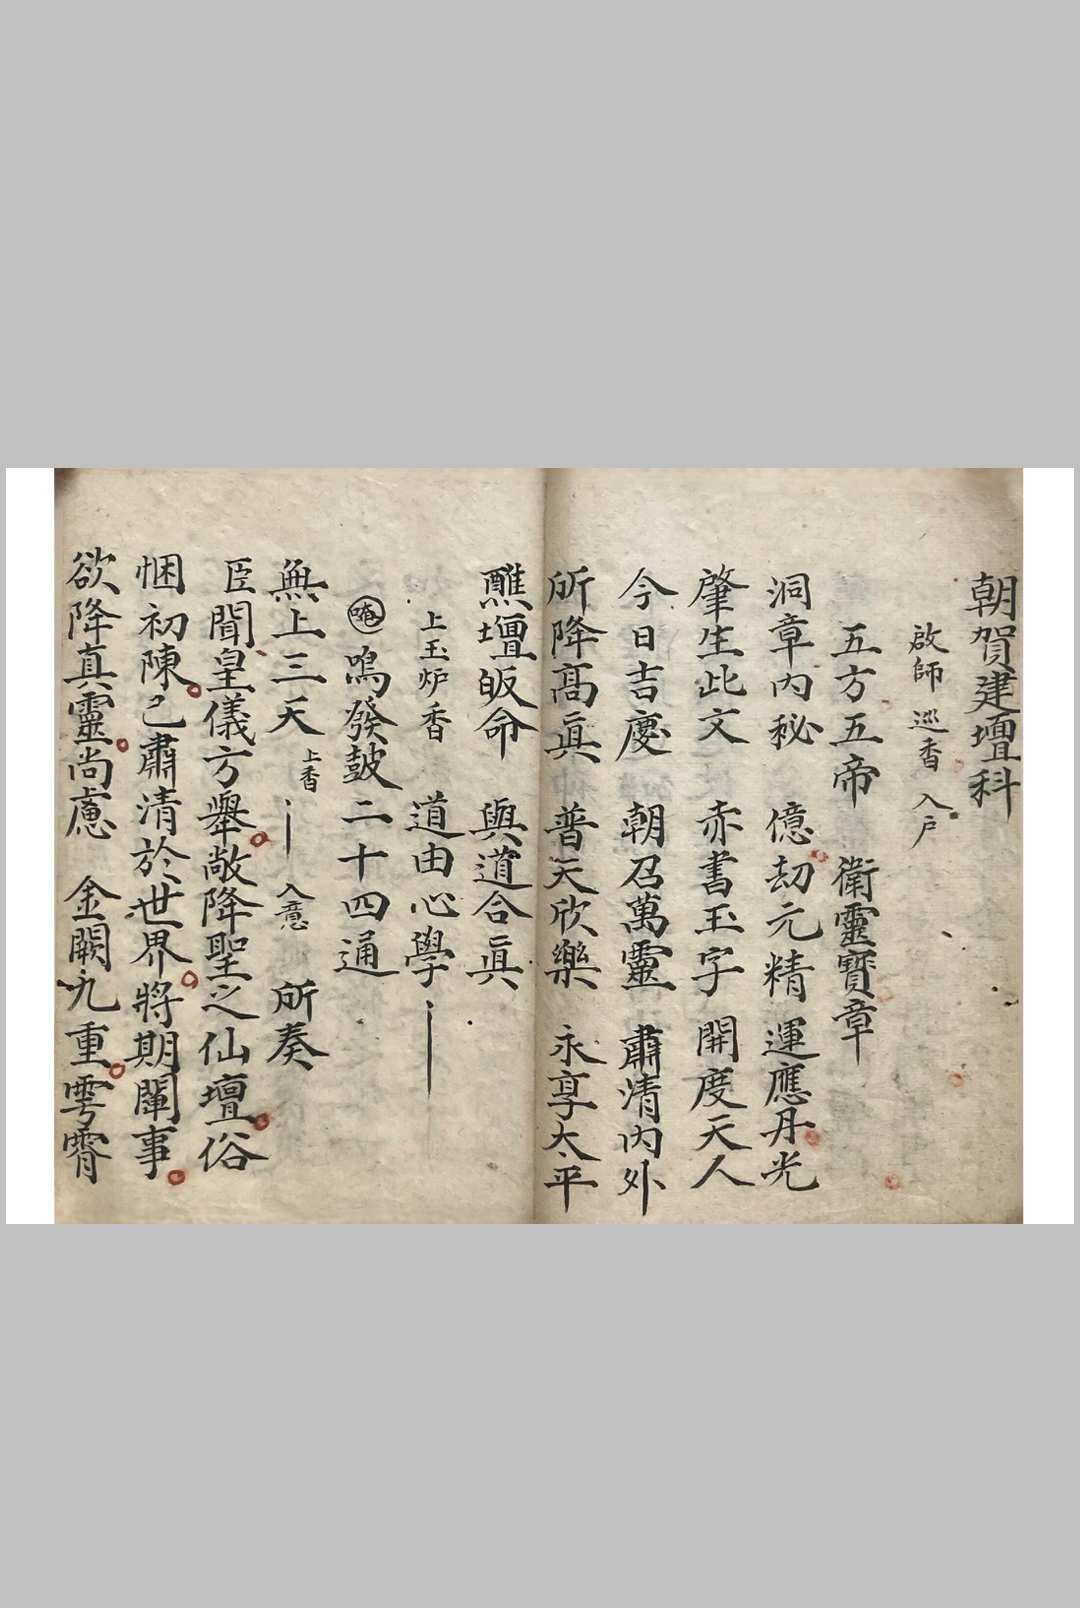 朝賀建壇科
啟師 巡香 入户
五方五帝 衛靈寶章
洞章內秘 億劫元精 運應丹光
肇生此文 赤書玉字 開度天人
今日吉慶 朝召萬靈 肅清內外
所降髙眞 普天欣樂 永享太平
醮壇皈命 與道合眞
上玉炉香 道由心學
唵 鳴發皷二十四通
無上三天 上香 入意 所奏
臣聞皇儀方舉敞降聖之仙壇俗
悃初陳已肅清於世界將期闡事
欲降真靈尚慮 金闕九重雩霄